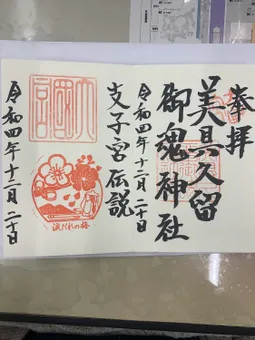 奉拝
美具久留
御魂神社
令和四年十二月二十日
支子宮伝説
涙だれの梅
令和四年十二月二十日